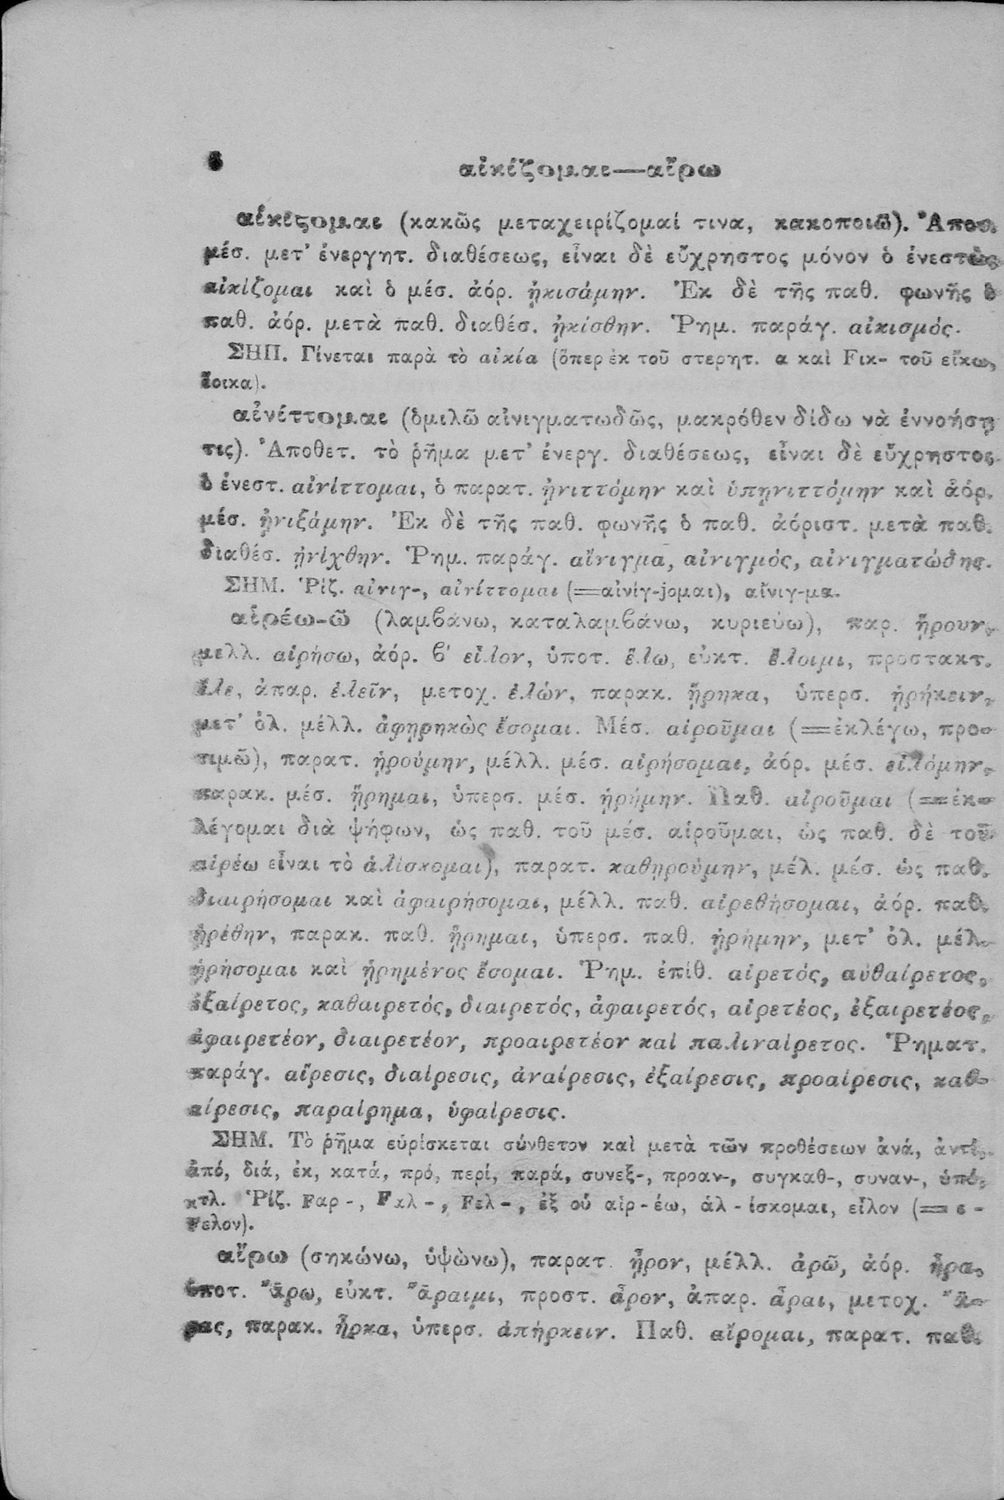 6
αἰκίζομαι—αἴρω
αἰκίζομαι (κακῶς μεταχειρίζομαί τινα, κακοποιῶ). Ἀποθ.
μέσ. μετ’ ἐνεργητ. διαθέσεως, εἶναι δὲ εὔχρηστος μόνον ὁ ἐνεστὼς
αἰκίζομαι καὶ ὁ μέσ. ἀόρ. ᾐκισάμην. Ἐκ δὲ τῆς παθ. φωνῆς ὁ
παθ. ἀόρ. μετὰ παθ. διαθέσ. ᾐκίσθην. Ῥημ. παράγ. αἰκισμός.
ΣΗΠ. Γίνεται παρὰ τὸ αἰκία (ὅπερ ἐκ τοῦ στερητ. α καὶ Fικ- τοῦ εἴκω,
ἔοικα).
αἰνίττομαι (ὁμιλῶ αἰνιγματωδῶς, μακρόθεν δίδω νὰ ἐννοήσῃ
τις). Ἀποθετ. τὸ ῥῆμα μετ’ ἐνεργ. διαθέσεως, εἶναι δὲ εὔχρηστος
ὁ ἐνεστ. αἰνίττομαι, ὁ παρατ. ᾐνιττόμην καὶ ὑπῃνιττόμην καὶ ἀόρ.
μέσ. ᾐνιξάμην. Ἐκ δὲ τῆς παθ. φωνῆς ὁ παθ. ἀόριστ. μετὰ παθ.
διαθέσ. ᾐνίχθην. Ῥημ. παράγ. αἴνιγμα, αἰνιγμός, αἰνιγματώδης.
ΣΗΜ. Ῥίζ. αἰνιγ-, αἰνίττομαι (=αἰνίγ-jομαι), αἴνιγ-μα.
αἱρέω-ῶ (λαμβάνω, καταλαμβάνω, κυριεύω), παρ. ᾕρουν,
μελλ. αἱρήσω, ἀόρ. β′ εἷλον, ὑποτ. ἕλω, εὐκτ. ἕλοιμι, προστακτ.
ἕλε, ἀπαρ. ἑλεῖν, μετοχ. ἑλών, παρακ. ᾕρηκα, ὑπερσ. ᾑρήκειν,
μετ’ ὁλ. μέλλ. ἀφῃρηκὼς ἔσομαι. Μέσ. αἱροῦμαι (=ἐκλέγω, προ-
τιμῶ), παρατ. ᾑρούμην, μέλλ. μέσ. αἱρήσομαι, ἀόρ. μέσ. εἱλόμην,
παρακ. μέσ. ᾕρημαι, ὑπερσ. μέσ. ᾑρήμην. Παθ. αἱροῦμαι (=ἐκ-
λέγομαι διὰ ψήφων, ὡς παθ. τοῦ μέσ. αἱροῦμαι, ὡς παθ. δὲ τοῦ
αἱρέω εἶναι τὸ ἁλίσκομαι), παρατ. καθῃρούμην, μέλ. μέσ. ὡς παθ.
διαιρήσομαι καὶ ἀφαιρήσομαι, μέλλ. παθ. αἱρεθήσομαι, ἀόρ. παθ.
ᾑρέθην, παρακ. παθ. ᾕρημαι, ὑπερσ. παθ. ᾑρήμην, μετ’ ὁλ. μέλ.
ᾑρήσομαι καὶ ᾑρημένος ἔσομαι. Ῥημ. ἐπίθ. αἱρετός, αὐθαίρετος,
ἐξαίρετος, καθαιρετός, διαιρετός, ἀφαιρετός, αἱρετέος, ἐξαιρετέος,
ἀφαιρετέον, διαιρετέον, προαιρετέον καὶ παλιναίρετος. Ῥηματ.
παράγ. αἵρεσις, διαίρεσις, ἀναίρεσις, ἐξαίρεσις, προαίρεσις, καθ-
αίρεσις, παραίρημα, ὑφαίρεσις.
ΣΗΜ. Τὸ ῥῆμα εὑρίσκεται σύνθετον καὶ μετὰ τῶν προθέσεων ἀνά, ἀντί,
ἀπό, διά, ἐκ, κατά, πρό, περί, παρά, συνεξ-, προαν-, συγκαθ-, συναν-, ὑπό,
κτλ. Ῥίζ. Fαρ-, Fαλ-, Fελ-, ἐξ οὗ αἱρ-έω, ἁλ-ίσκομαι, εἷλον (= ε-
Fελον).
αἴρω (σηκώνω, ὑψώνω), παρατ. ᾖρον, μέλλ. ἀρῶ, ἀόρ. ἦρα,
ὑποτ. ἄρω, εὐκτ. ἄραιμι, προστ. ἆρον, ἀπαρ. ἆραι, μετοχ. ἄ-
ρας, παρακ. ἦρκα, ὑπερσ. ἀπήρκειν. Παθ. αἴρομαι, παρατ. παθ.